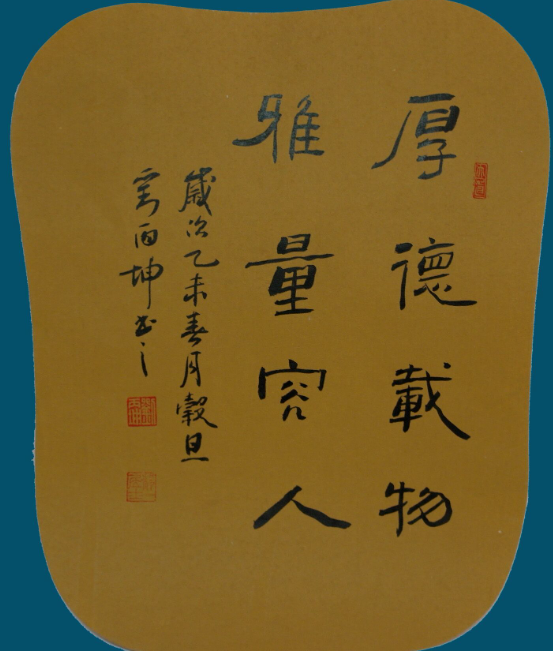 厚德載物
雅量容人
歲次乙未春月穀旦
百坤书之